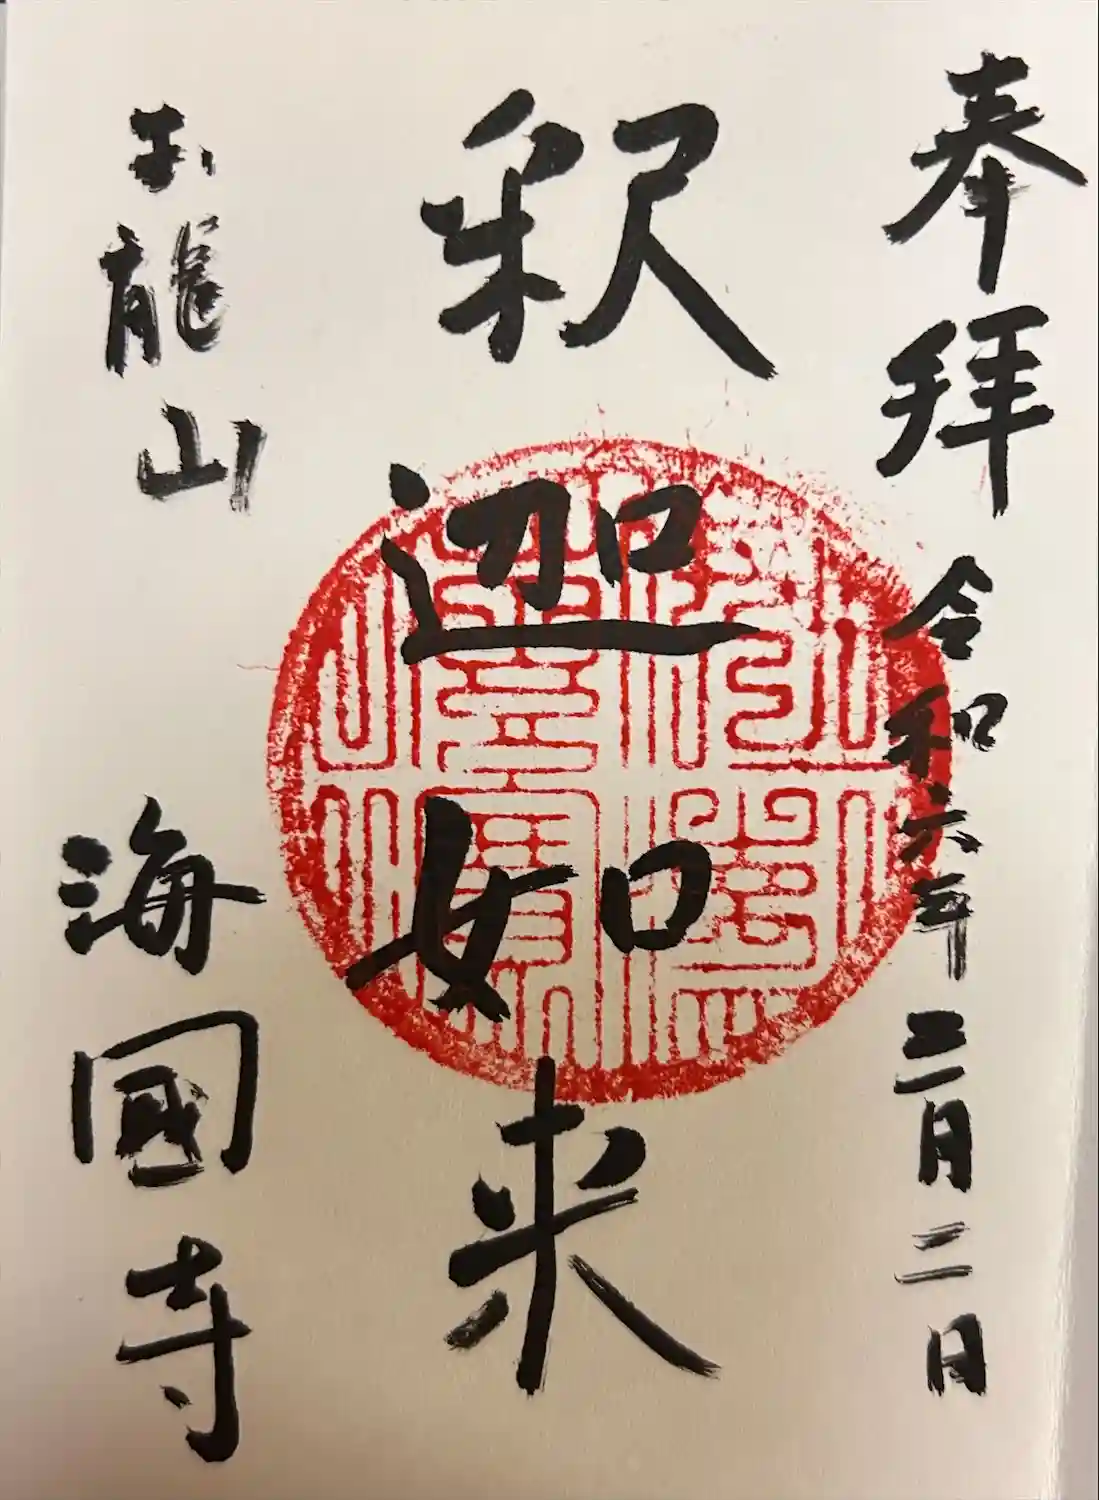 奉拝 令和六年三月二日
釈迦如来
玉龍山 海國寺